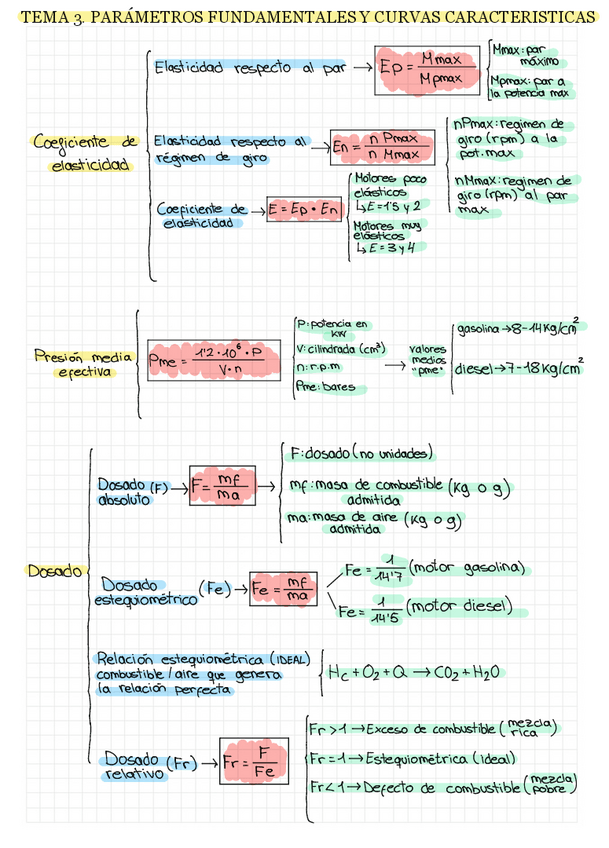 TEMA 3. PARÁMETROS FUNDAMENTALES Y CURVAS CARACTERISTICAS
Coeficiente de
elasticidad
Elasticidad respecto al par → Ep = Mmax / Mpmax
Mmax: par
máximo
Mpmax: par a
la potencia max
Elasticidad respecto al
régimen de giro → En = n Pmax / n Mmax
nPmax: regimen de
giro (rpm) a la
pot. max
nMmax: regimen de
giro (rpm) al par
max
Coeficiente de
elasticidad → E = Ep · En
Motores poco
elásticos
↳ E = 1'5 y 2
Motores muy
elásticos
↳ E = 3 y 4
Presión media
efectiva
Pme = 1'2 · 10⁶ · P / V · n
P: potencia en
kW
V: cilindrada (cm³)
n: r.p.m
Pme: bares
→ valores
medios
"pme"
gasolina → 8-14 Kg/cm²
diesel → 7-18 Kg/cm²
Dosado
Dosado (F)
absoluto → F = mf / ma →
F: dosado (no unidades)
mf: masa de combustible (kg o g)
admitida
ma: masa de aire (kg o g)
admitida
Dosado
estequiométrico (Fe) → Fe = mf / ma
Fe = 1 / 14'7 (motor gasolina)
Fe = 1 / 14'5 (motor diesel)
Relación estequiométrica (IDEAL)
combustible / aire que genera
la relación perfecta
Hc + O2 + Q → CO2 + H2O
Dosado (Fr)
relativo → Fr = F / Fe
Fr > 1 → Exceso de combustible (mezcla rica)
Fr = 1 → Estequiométrica (ideal)
Fr < 1 → Defecto de combustible (mezcla pobre)